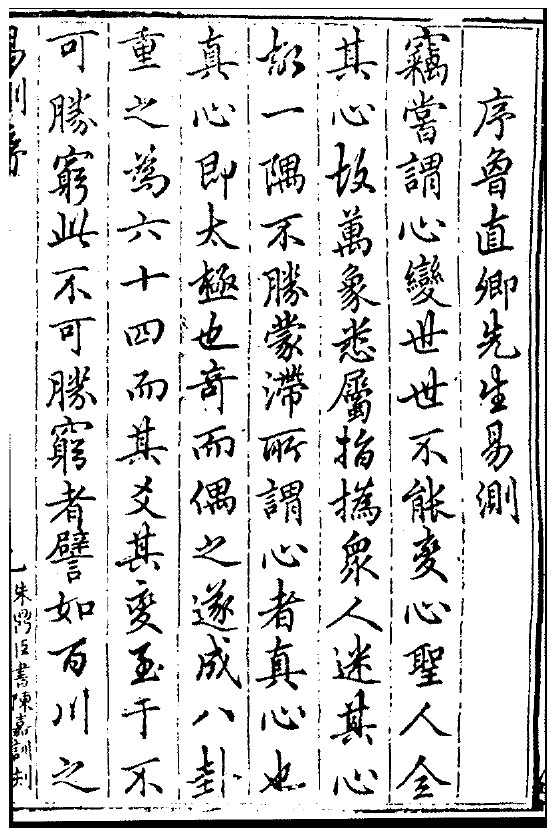 序魯直卿先生易測
竊嘗謂心變世世不能變心聖人全
其心故萬象悉屬指撝衆人迷其心
故一隅不勝蒙滯所謂心者真心也
真心即太極也奇而偶之遂成八卦
重之為六十四而其爻其變至于不
可勝窮此不可勝窮者譬如百川之
易測序
朱鼎臣書陳嘉訓刻